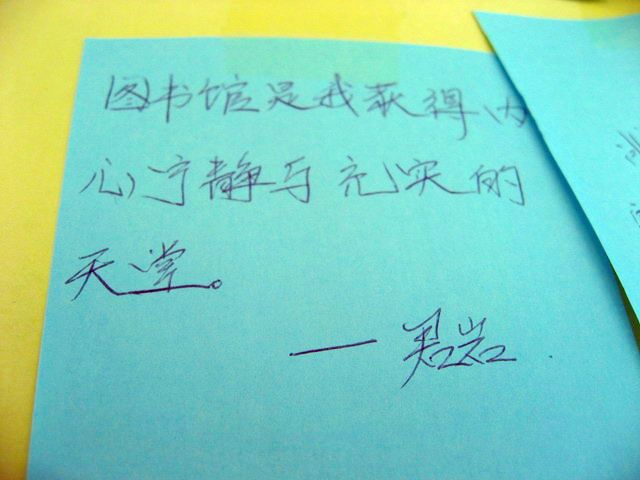 图书馆是我获得内
心宁静与充实的
天堂。
— 君岩